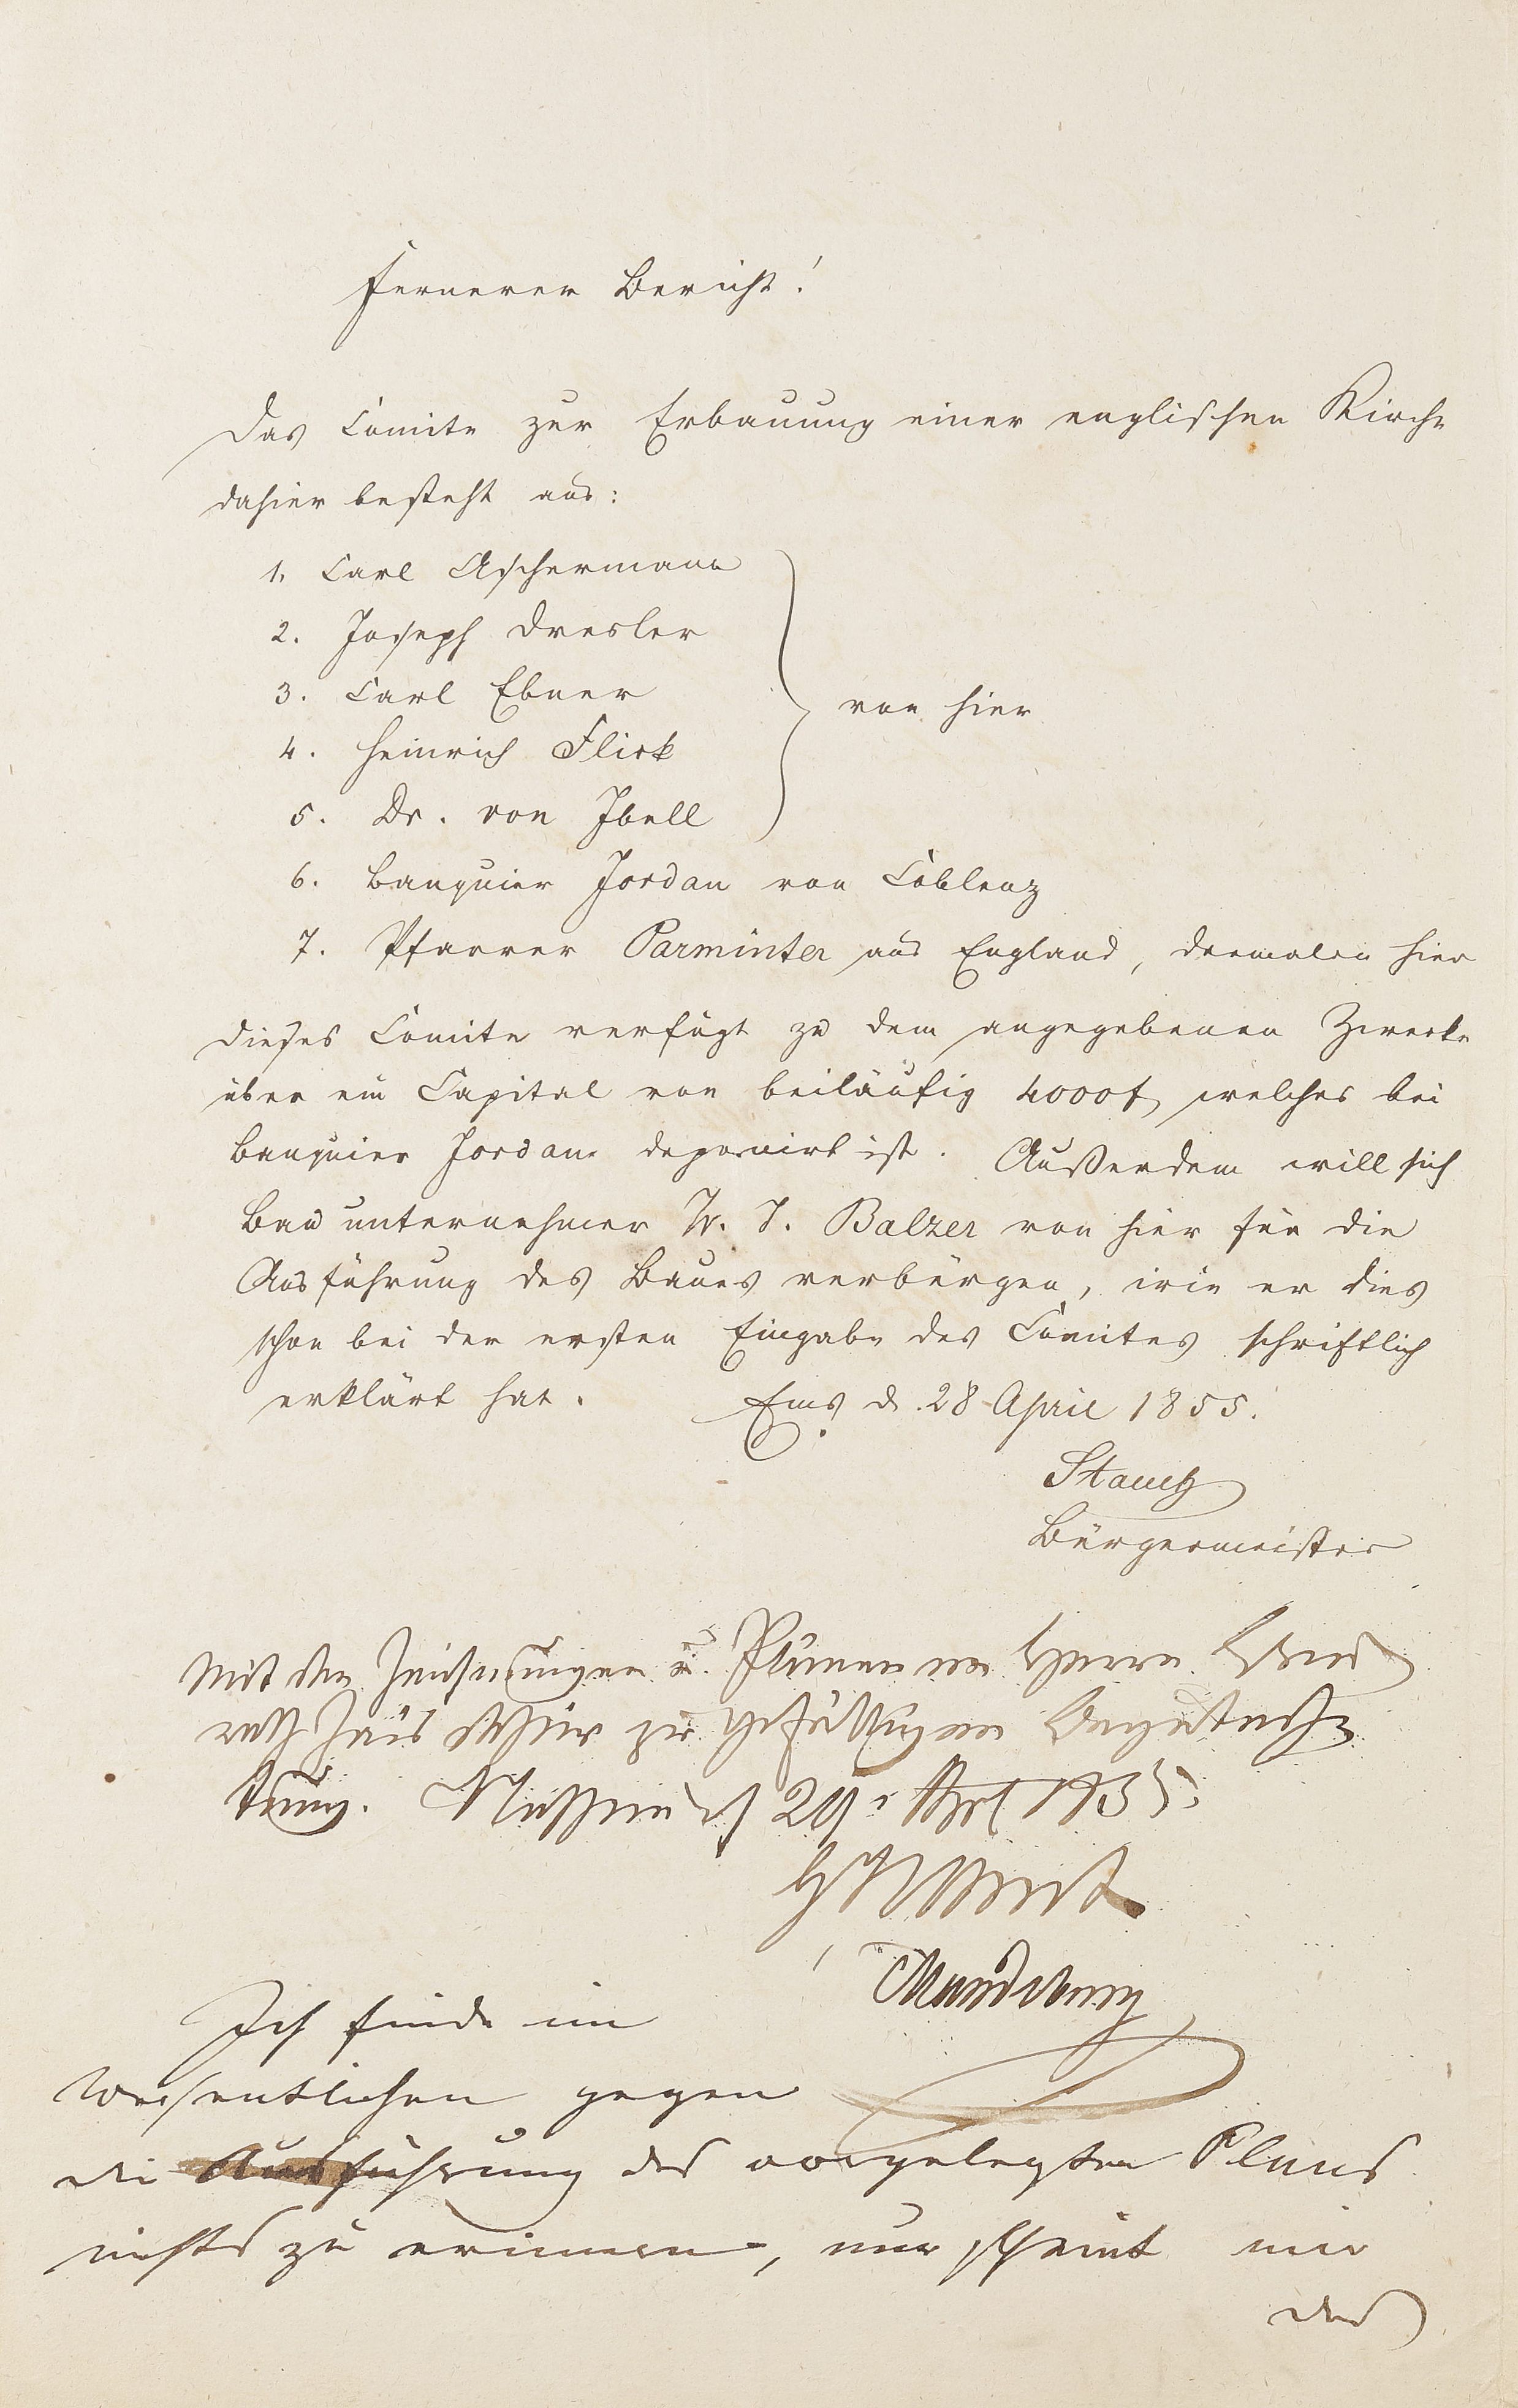 Fernerer Bericht!
Das Comite zur Erbauung einer englischen Kirche
dahier besteht aus:
1. Carl Aschermann
2. Joseph Dresler
3. Carl Ebner
von hier
4. Heinrich Flick
5. Dr. von Ibell
6. Banquier Jordan von Coblenz
7. Pfarrer Parminter aus England, dermalen hier
Dieses Comite verfügt zu dem angegebenen Zwecke
über ein Capital von beiläufig 4000f, welches bei
Banquier Jordan deponirt ist. Außerdem will sich
Bauunternehmer W. J. Balzer von hier für die
Ausführung des Baues verbürgen, wie er dies
schon bei der ersten Eingabe des Comites schriftlich
erklärt hat. Ems d. 28 April 1855.
Bürgermeister
Mit den Zeichnungen u. Plänen an Herrn
zur gefälligen Begutach
tung. Nassau d 29 Apl 1855.
Ich finde im
Wesentlichen gegen
die Ausführung des vorgelegten Planes
nichts zu erinnern, nur scheint mir
das